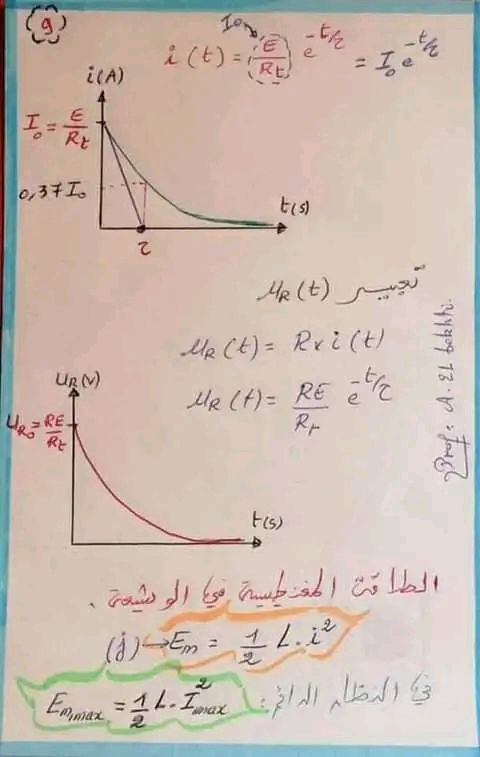 9
I₀
i(t) = E/Rt e^(-t/τ) = I₀ e^(-t/τ)
i(A)
I₀ = E/Rt
0,37 I₀
t(s)
τ
تعبير u_R(t)
u_R(t) = R x i(t)
u_R(t) = RE/Rt e^(-t/τ)
Prof: A. El bekhti.
u_R(v)
u_R₀ = RE/Rt
t(s)
الطاقة المغنطيسية في الوشيعة .
(j) → Em = 1/2 L . i²
في النظام الدائم :
Em,max = 1/2 L . I²max